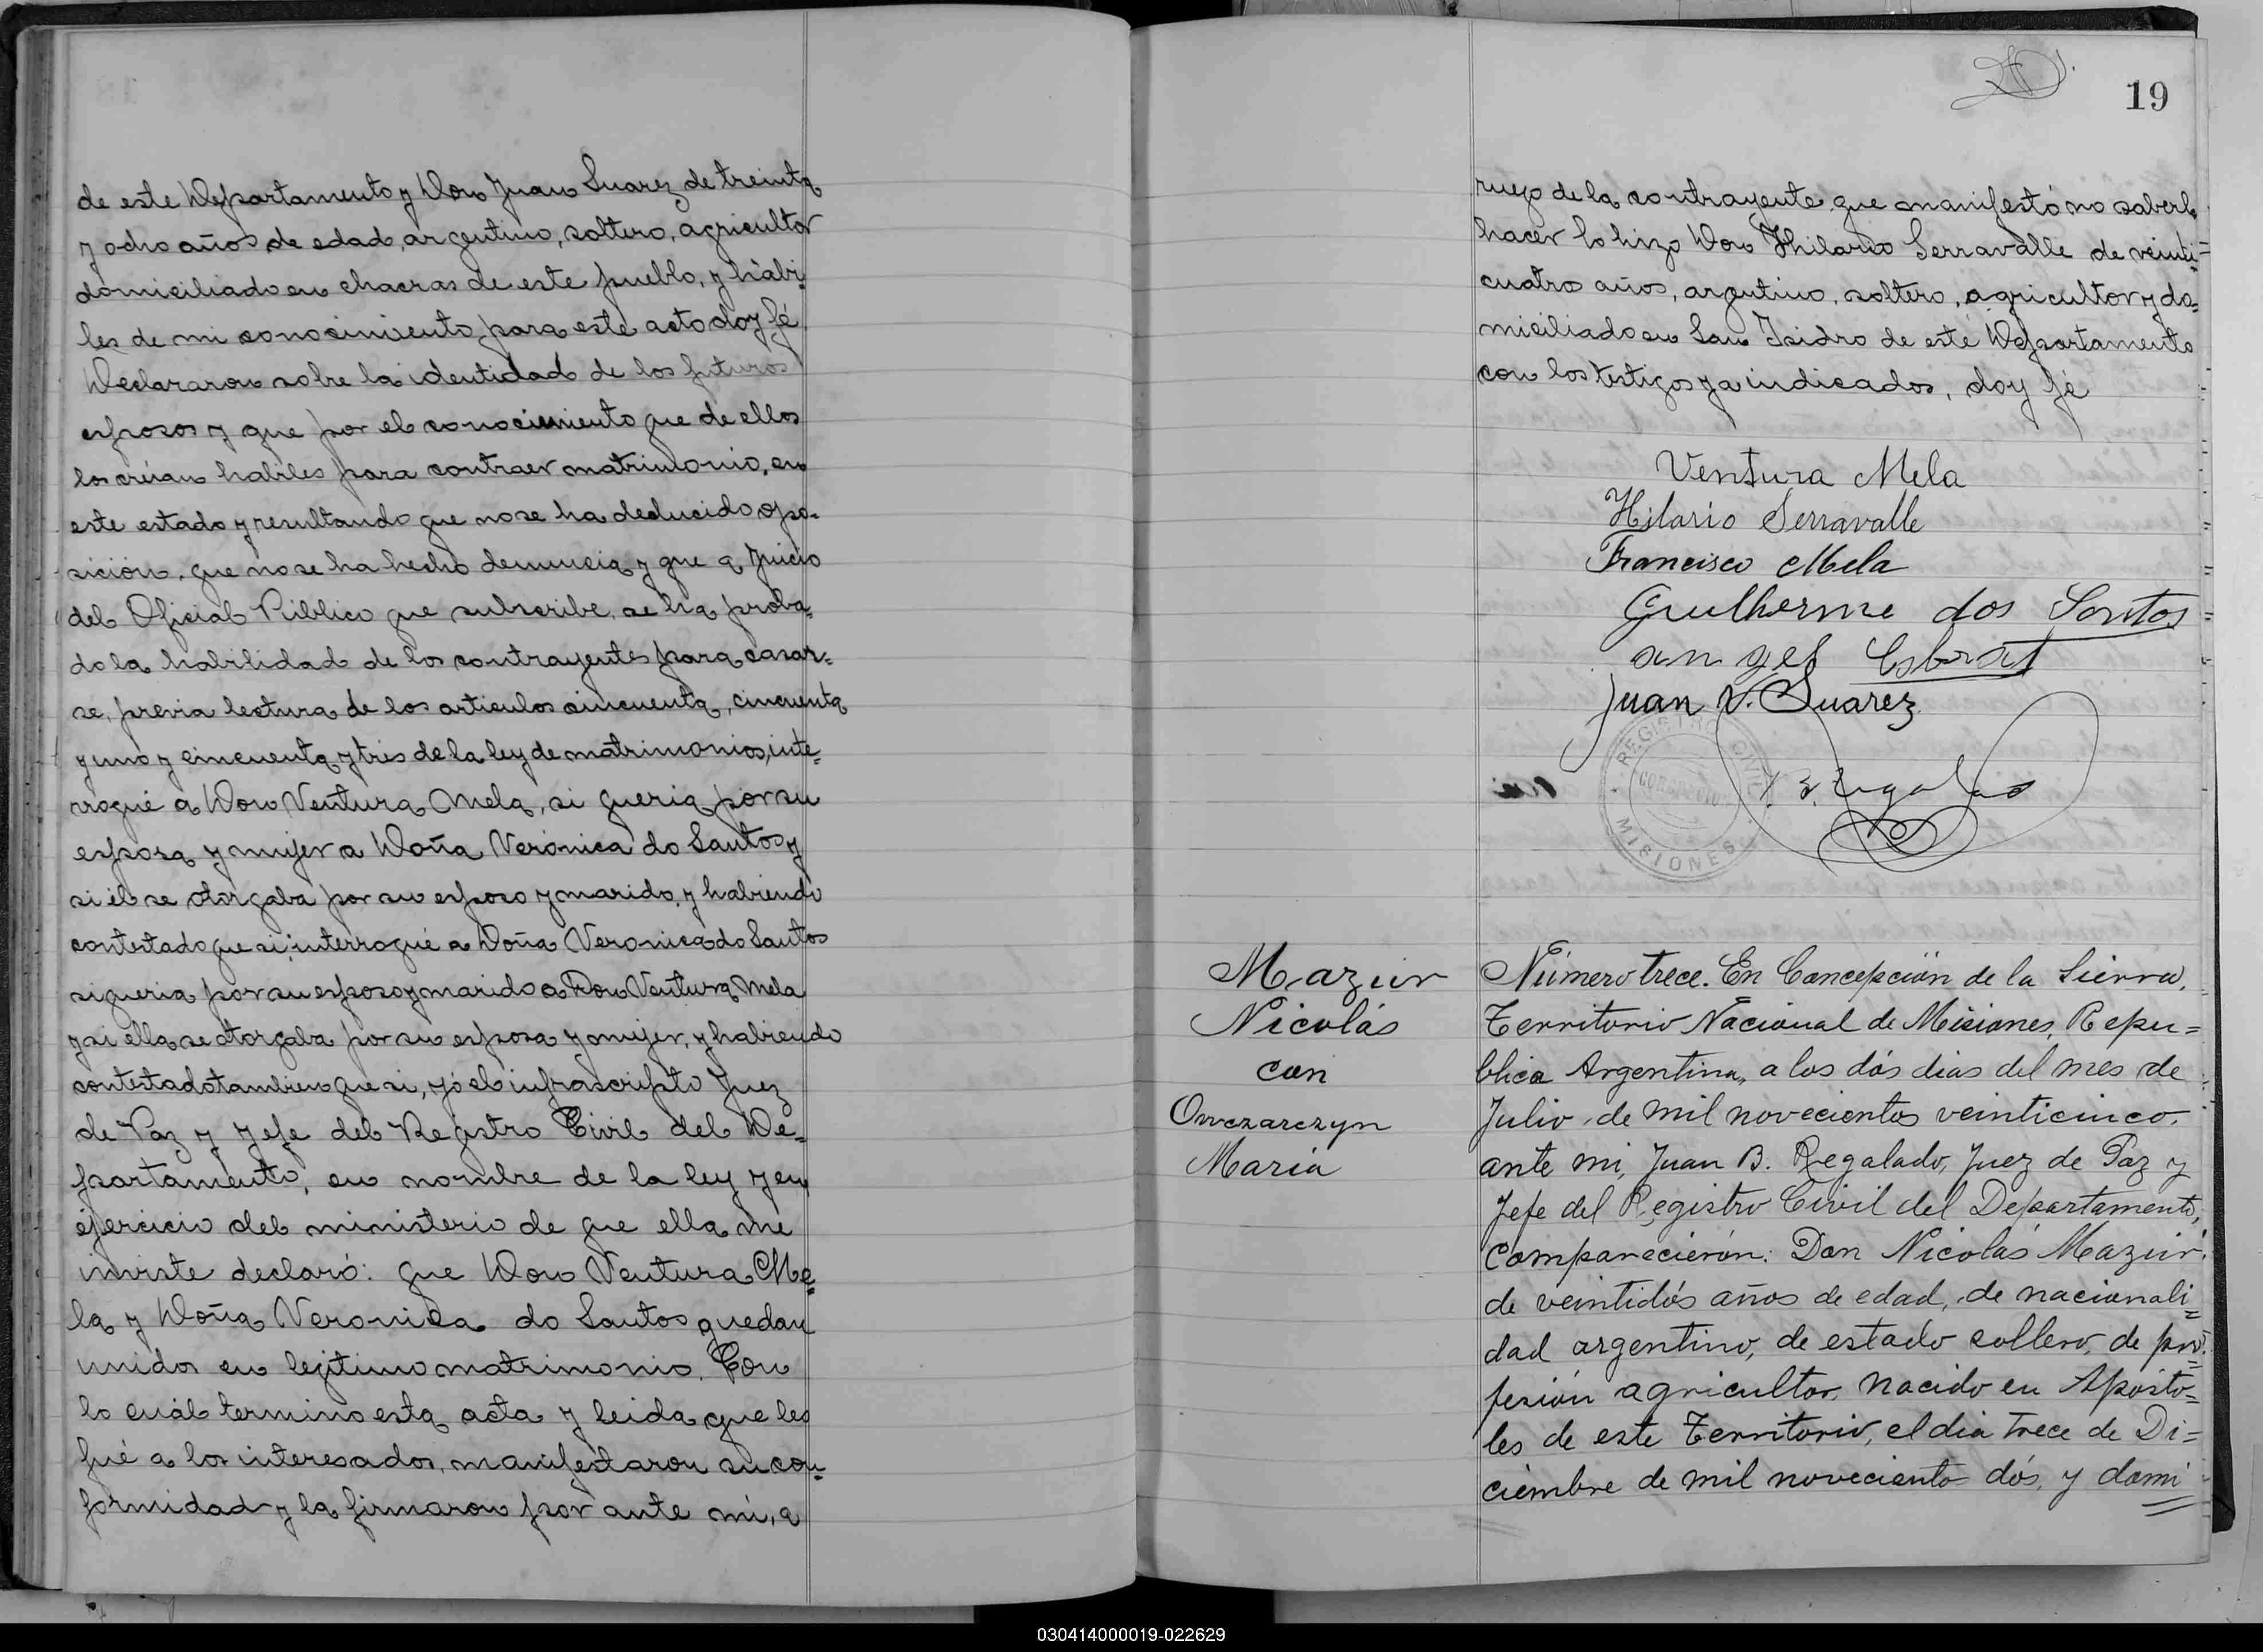 de este Departamento y Don Juan Suarez de treinta
y ocho años de edad, argentino, soltero, agricultor
domiciliado en chacras de este pueblo, y hábi-
les de mi conocimiento para este acto doy fé
Declararon sobre la identidad de los futuros
esposos y que por el conocimiento que de ellos
los créian habiles para contraer matrimonio, en
este estado y resultando que no se ha deducido opo-
sición, que no se ha hecho denuncia y que a Juicio
del Oficial Público que subscribe, se ha proba-
do la habilidad de los contrayentes para casar-
se, previa lectura de los articulos cincuenta, cincuenta
y uno y cincuenta y tres de la ley de matrimonios, inte-
rrogué a Don Ventura Mela, si queria por su
esposa y mujer a Doña Verónica do Santos y
si él se otorgaba por su esposo y marido, y habiendo
contestado que si, interrogué a Doña Veronica do Santos
si queria por su esposo y marido a Don Ventura Mela
y si ella se otorgaba por su esposa y mujer, y habiendo
contestado tambien que si, yó el infrascripto Juez
de Paz y Jefe del Registro Civil del De-
partamento, en nombre de la ley y en
ejercicio del ministerio de que ella me
inviste declaró: que Don Ventura Me-
la y Doña Veronica do Santos quedan
unidos en legitimo matrimonio. Con
lo cuál termino esta acta y leida que les
fué a los interesados, manifestaron su con-
formidad y la firmaron por ante mi, a
19
ruego de la contrayente que manifestó no saberlo
hacer lo hizo Don Hilario Serravalle de veinti-
cuatro años, argentino, soltero, agricultor y do-
miciliado en San Isidro de este Departamento
con los testigos ya indicados, doy fé
Ventura Mela
Hilario Serravalle
Francisco Mela
Guilherme dos Santos
angel
Juan V. Suarez
REGISTRO CIVIL
CONCEPCION
MISIONES
Mazur
Nicolás
con
Owczarczyn
María
Número trece. En Concepción de la Sierra,
Territorio Nacional de Misiones, Repu=
blica Argentina, a los dós dias del mes de
Julio de mil novecientos veinticinco.
ante mi, Juan B. Regalado, Juez de Paz y
Jefe del Registro Civil del Departamento,
Comparecierón: Don Nicolás Mazur,
de veintidós años de edad, de nacionali=
dad argentino, de estado soltero, de pro=
fesión agricultor, nacido en Aposto=
les de este Territorio, el dia trece de Di=
ciembre de mil novecientos dós, y domi
030414000019-022629